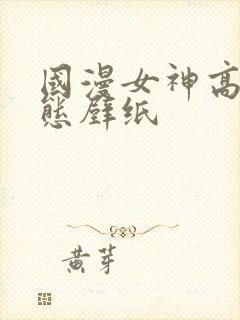 國漫女神高
態壁纸
黄芽